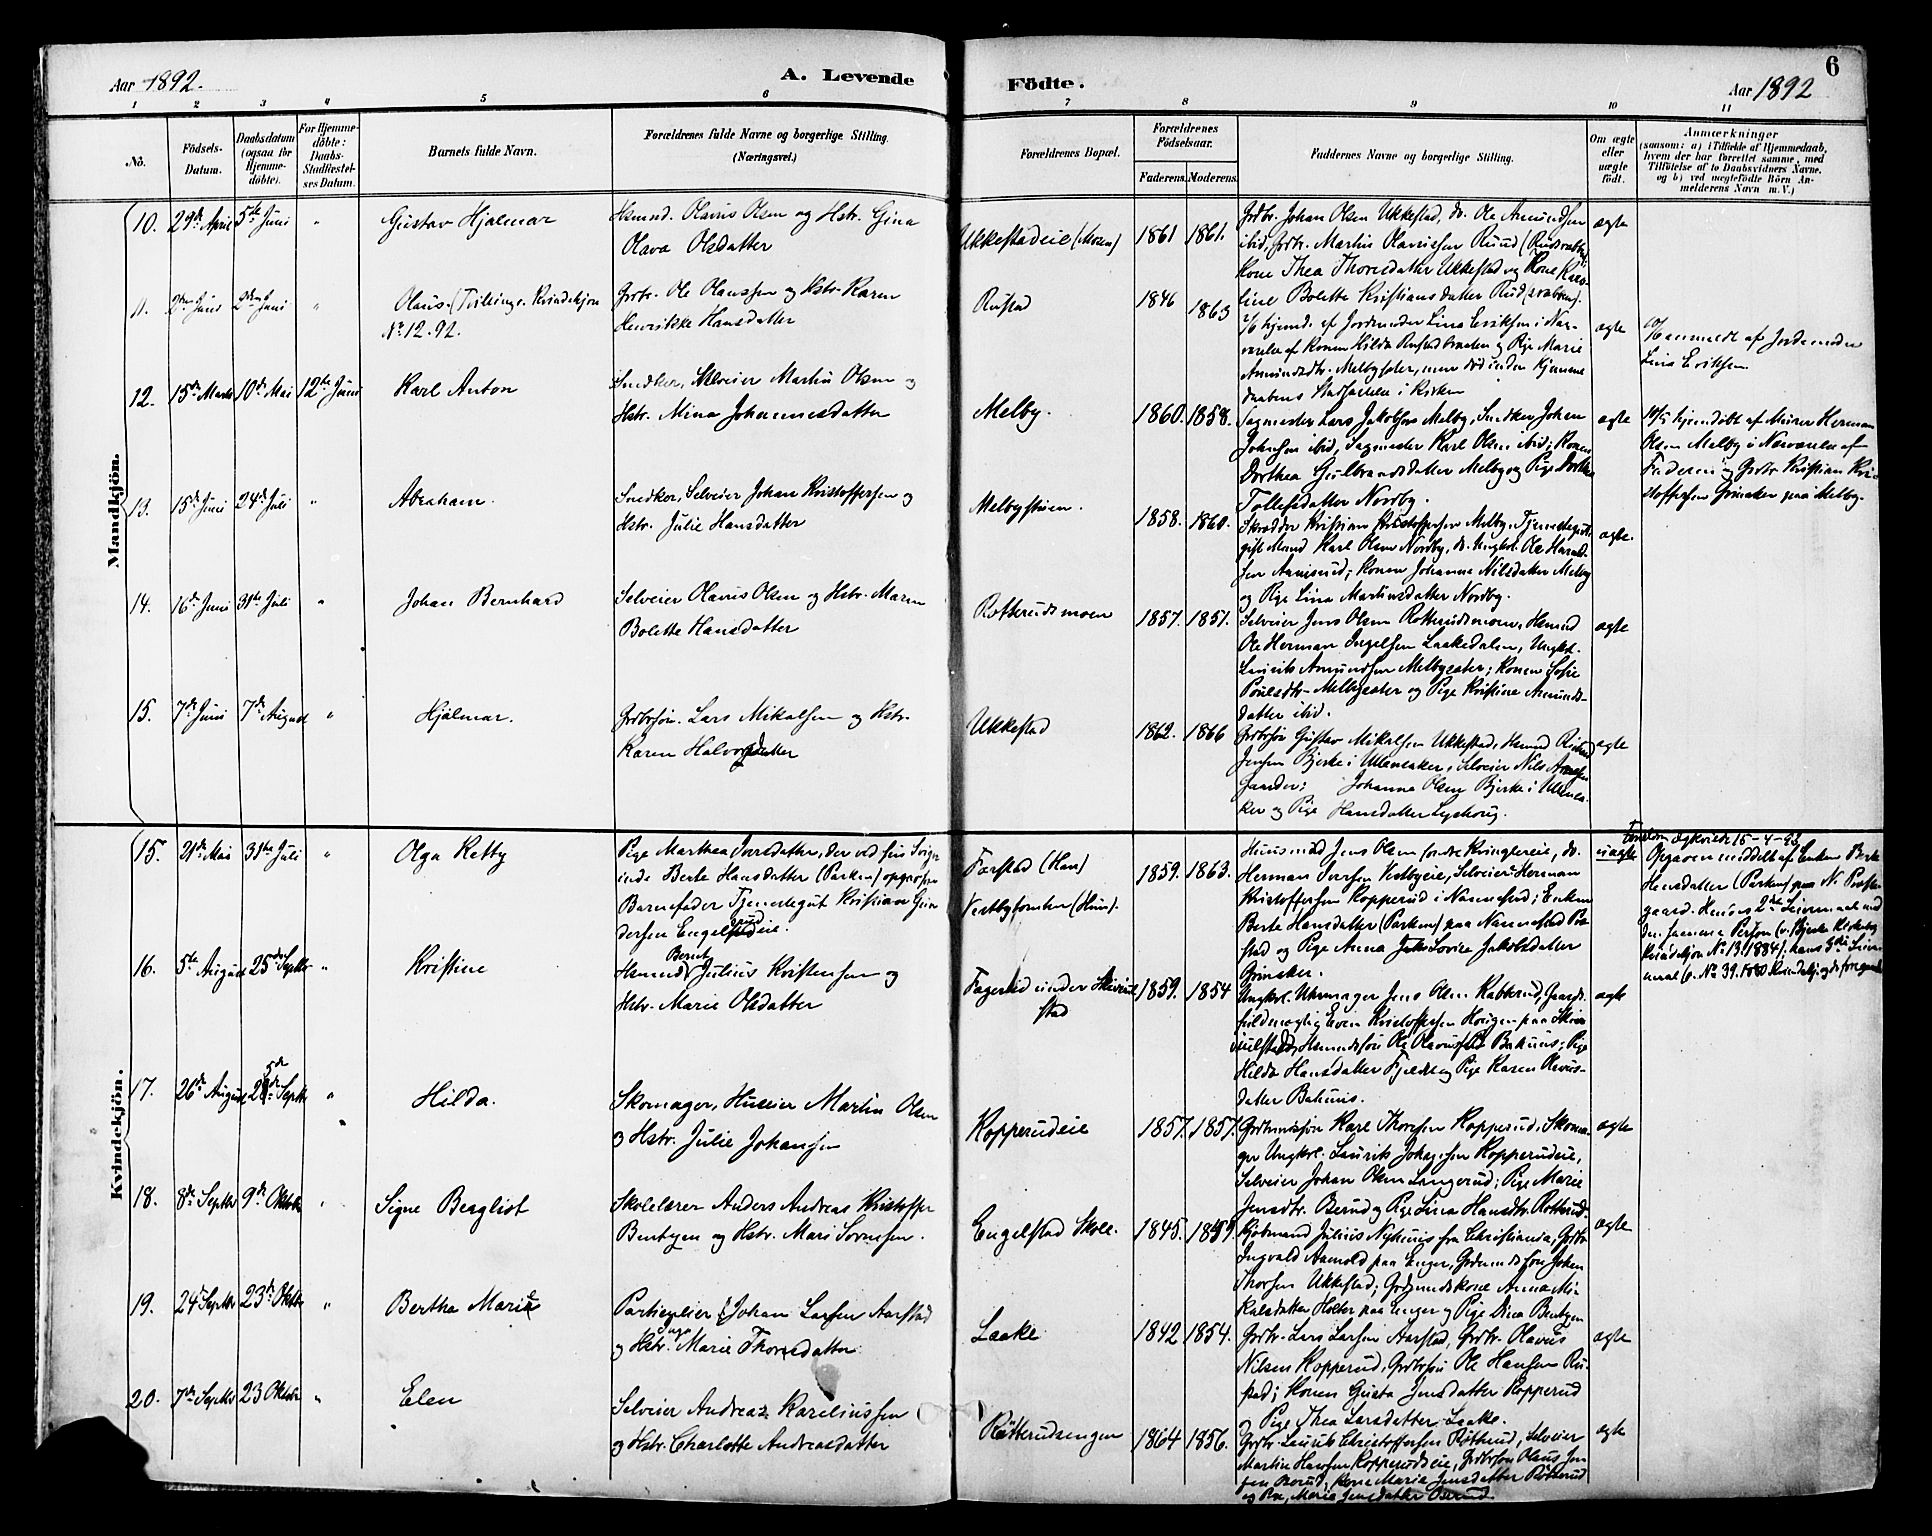 Aar 1892.
A. Levende
Födte.
6
Aar 1892
1 2 3 4 5 6 7 8 9 10 11
No.
Födsels-
Datum.
Daabsdatum
(ogsaa for
Hjemme-
döbte).
For Hjemme-
döbte:
Daabs-
Stadfæstel-
ses Datum.
Barnets fulde Navn.
Forældrenes fulde Navne og borgerlige Stilling.
(Næringsvei.)
Forældrenes Bopæl.
Forældrenes
Födselsaar.
Faderens. Moderens.
Faddernes Navne og borgerlige Stilling.
Om ægte
eller
uægte
födt.
Anmærkninger
(saasom: a) i Tilfælde af Hjemmedaab,
hvem der har forrettet samme, med
Tilföielse af to Daabsvidners Navne.
og b) ved uægtefödte Börn An-
melderens Navn m. V.)
Mandkjön.
10. 29de April 5te Juni " Gustav Hjalmar
Hsmnd. Olavus Olsen og Hstr. Gina
Olava Olsdatter
Ukkestadeie (Moen) 1861 1861.
Grdbr. Johan Olsen Ukkestad, do. Ole Amundsen
ibid, Grdbr. Martin Olavessen Ruud
Kone Thea Thoresdatter Ukkestad og Kone Karo-
line Bolette Kristiansdatter Rud
ægte
11. 2den Juni 2den Juni " Olaus. (Tvillinge. Kvindekjøn
No. 12. 92.
Grdbr. Ole Olaussen og Hstr. Karen
Henrikke Hansdatter
Rustad 1846 1863
2/6 hjemd. af Jordmoder Lina Eriksen i Nær-
værelse af Konen Hilda Rustadbraaten og Pige Marie
Amundsdtr. Melbysæter, men död inden Hjemme
daabens Stadfæstelse i Kirken
ægte
anmeldt af Jordemoder
Lina Eriksen
12. 15de Marts 10de Mai 12te Juni Karl Anton
Snedker, Selveier Martin Olsen og
Hstr. Mina Johannesdatter
Melby. 1860. 1858.
Sagmester Lars Jakobsen Melby, Snedker Johan
Johnsen ibid, Sagmester Karl Olsen ibid; Konen
Dorthea Gulbrandsdatter Melby og Pige Dorthea
Tollefsdatter Nordby.
ægte
10/5 hjemdöbt af Murer Herman
Olsen Melby i Nærværelse af
Faderen og Grdbr. Kristian Kri-
stoffersen Grinaker paa Melby.
13. 15de Juni 24de Juli " Abraham.
Snedker, Selveier Johan Kristoffersen og
Hstr. Julie Hansdatter
Melbystuen. 1858. 1860.
Skrædder Kristian Kristoffersen Melby, Tjenestegut
gift Mand Karl Olsen Nordby, do. Ungkl. Ole Harald-
sen Aamrud; Konen Johanne Nilsdatter Melby
og Pige Lina Martinsdatter Nordby.
ægte.
14. 16de Juni 31te Juli " Johan Bernhard
Selveier Olavus Olsen og Hstr. Maren
Bolette Hansdatter
Rotterudsmoen 1857. 1851.
Selveier Jens Olsen Rotterudsmoen, Hsmnd
Ole Herman Ingelsen Laakedalen, Ungkl.
Laurits Amundsen Melbysæter; Konen Sofie
Poulsdtr. Melbysæter og Pige Kristine Amunds-
datter ibid.
ægte
15. 7de Juni 7de August " Hjalmar.
Grdbrsön. Lars Mikalsen og Hstr.
Karen Halvorsdatter
Ukkestad 1862. 1866
Grdbrsön Gustav Mikalsen Ukkestad, Hsmnd
Jensen Bjerke i Ullensaker, Selveier Nils
Johanna Olsen Bjerke i Ullensa-
ker og Pige Hansdatter
ægte
Kvindekjön.
15. 21de Mai 31te Juli " Olga Ketty
Pige Marthea Iversdatter, der ved sin Sviger-
inde Berte Hansdatter (Parken) opgav som
Barnefader Tjenestegut Kristian Gun-
dersen Engelsrudeie.
Farstad (Han)
Vestbytomten (Hun). 1859. 1863.
Huusmand Jens Olsen Kvinglereie, do.
Herman Iversen Vestbyeie, Selveier Herman
Kristoffersen Kopperud i Nannestad; Enken
Berte Hansdatter (Parken) paa Nannestad Præ-
stad og Pige Anna Lovise Jakobsdatter
Grinaker.
uægte
15-4-93
Opgaven meddelt af Enken Berte
Hansdatter (Parken) paa N. Præste-
gaard. Hendes 2de Leiermaal med
den samme Person (v. Bjerke Kirkebog
Kvindekjön No. 13 1884).
16. 5te August 25de Septbr " Kristine
Hsmnd Bernt Julius Kristensen og
Hstr. Marie Olsdatter
Fagerlid under Skivel-
stad 1859. 1854
Ungkl. Uhrmager Jens Olsen Kabberud, Gaards-
fuldmægtig Even Kristoffersen Hougen paa Skive-
Hsmndssön Ole Olavusen Bahuus; Pige
Hilda Hansdatter Fjeldet og Pige Karen Olavus-
datter Bahuus.
ægte
17. 26de August 25de Septbr " Hilda.
Skomager, Huseier Martin Olsen
og Hstr. Julie Johansen
Kopperudeie 1857. 1857.
Grdmandssön Karl Thorsen Kopperud, Skoma-
ger Ungkl. Laurits Johansen Kopperudeie,
Selveier Johan Olsen Langerud; Pige Marie
Jensdtr. Berud og Pige Lina Hansdtr. Rotterud.
ægte
18. 8de Septbr 9de Oktobr " Signe Bergliot
Skolelærer Anders Andreas Kristoffer
Benbyen og Hstr. Mari Sörensen.
Engelstad Skole. 1845. 1859.
Kjöbmand Julius Nyhuus fra Christiania, Grdbr.
Ingvald Aamold paa Enger, Grdmandssön Johan
Thorsen Ukkestad; Grdmandskone Anna Mi-
kalsdatter Holter paa Enger og Pige Dina Benbyen
ægte
19. 24de Septbr 23de Oktobr " Bertha Marie
Partieeier Johan Larsen Aarstad
og Hstr. Marie Thorsdatter
Laake 1842 1854.
Grdbr. Lars Larsen Aarstad, Grdbr. Olavus
Nilsen Kopperud, Grdbrsön Ole Hansen Ru-
stad; Konen Gusta Jensdatter Kopperud
og Pige Thea Larsdatter Laake.
ægte
20. 7de Septbr 23 Oktobr " Elen
Selveier Andreas Kareliussen
og Hstr. Charlotte Andreasdatter
Rötterudsengen 1864 1856.
Grdbr. Laurits Christoffersen Rötterud, Selveier
Martin Hansen Kopperudseie, Grdbrsön Olaus Jen-
sen Berud; Kone Maria Jensdatter Rötterud
og Marie Jensdatter Berud
ægte